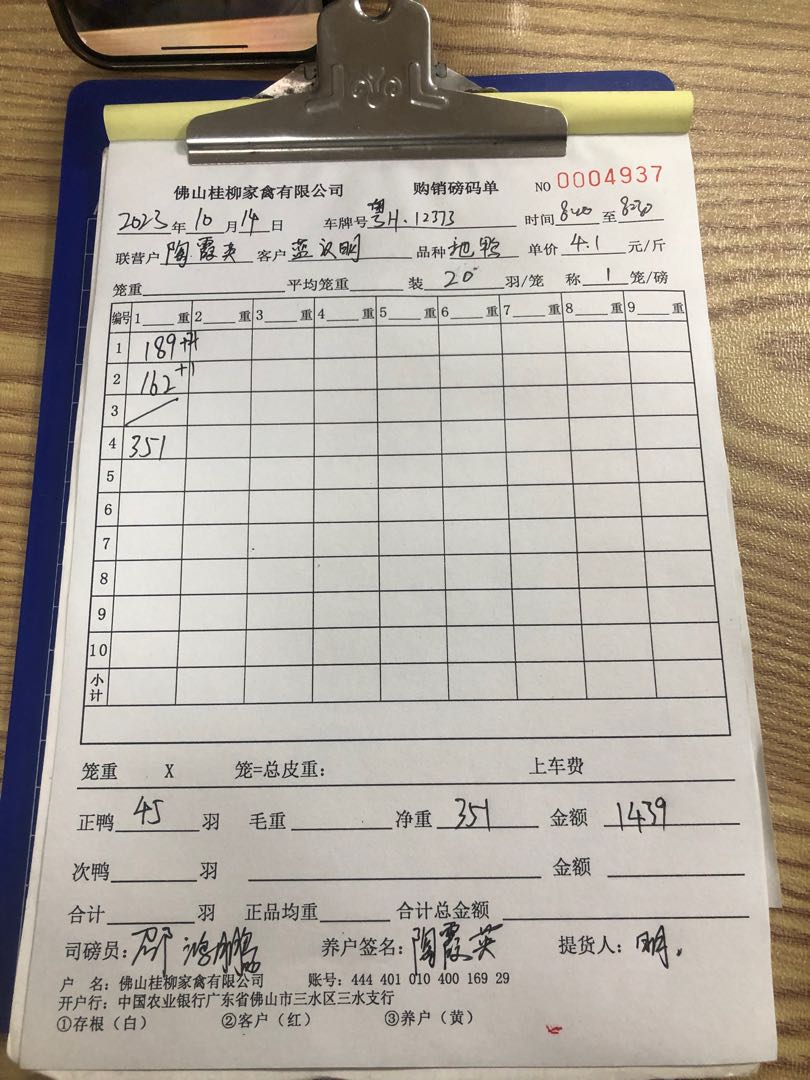 佛山桂柳家禽有限公司 购销磅码单 NO 0004937
2023年10月14日 车牌号粤H·12373 时间840至
联营户陶霞英 客户蓝汉明 品种 鸭 单价4.1元/斤
笼重 平均笼重 装20羽/笼 称1笼/磅
编号 1 重 2 重 3 重 4 重 5 重 6 重 7 重 8 重 9 重
1 189
2 162+1
3
4 351
5
6
7
8
9
10
小计
笼重 X 笼=总皮重: 上车费
正鸭45羽 毛重 净重351 金额1439
次鸭 羽 金额
合计 羽 正品均重 合计总金额
司磅员: 邵鸿鹏 养户签名: 陶霞英 提货人: 明.
户 名: 佛山桂柳家禽有限公司 账号: 444 401 010 400 169 29
开户行: 中国农业银行广东省佛山市三水区三水支行
①存根(白) ②客户(红) ③养户(黄)